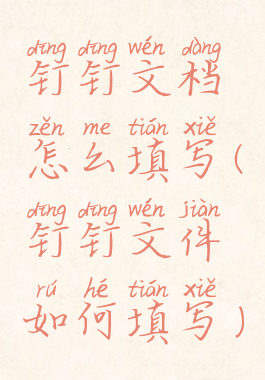 dīng dīng wén dàng
钉钉文档
zěn me tián xiě
怎么填写(
dīng dīng wén jiàn
钉钉文件
rú hé tián xiě
如何填写)